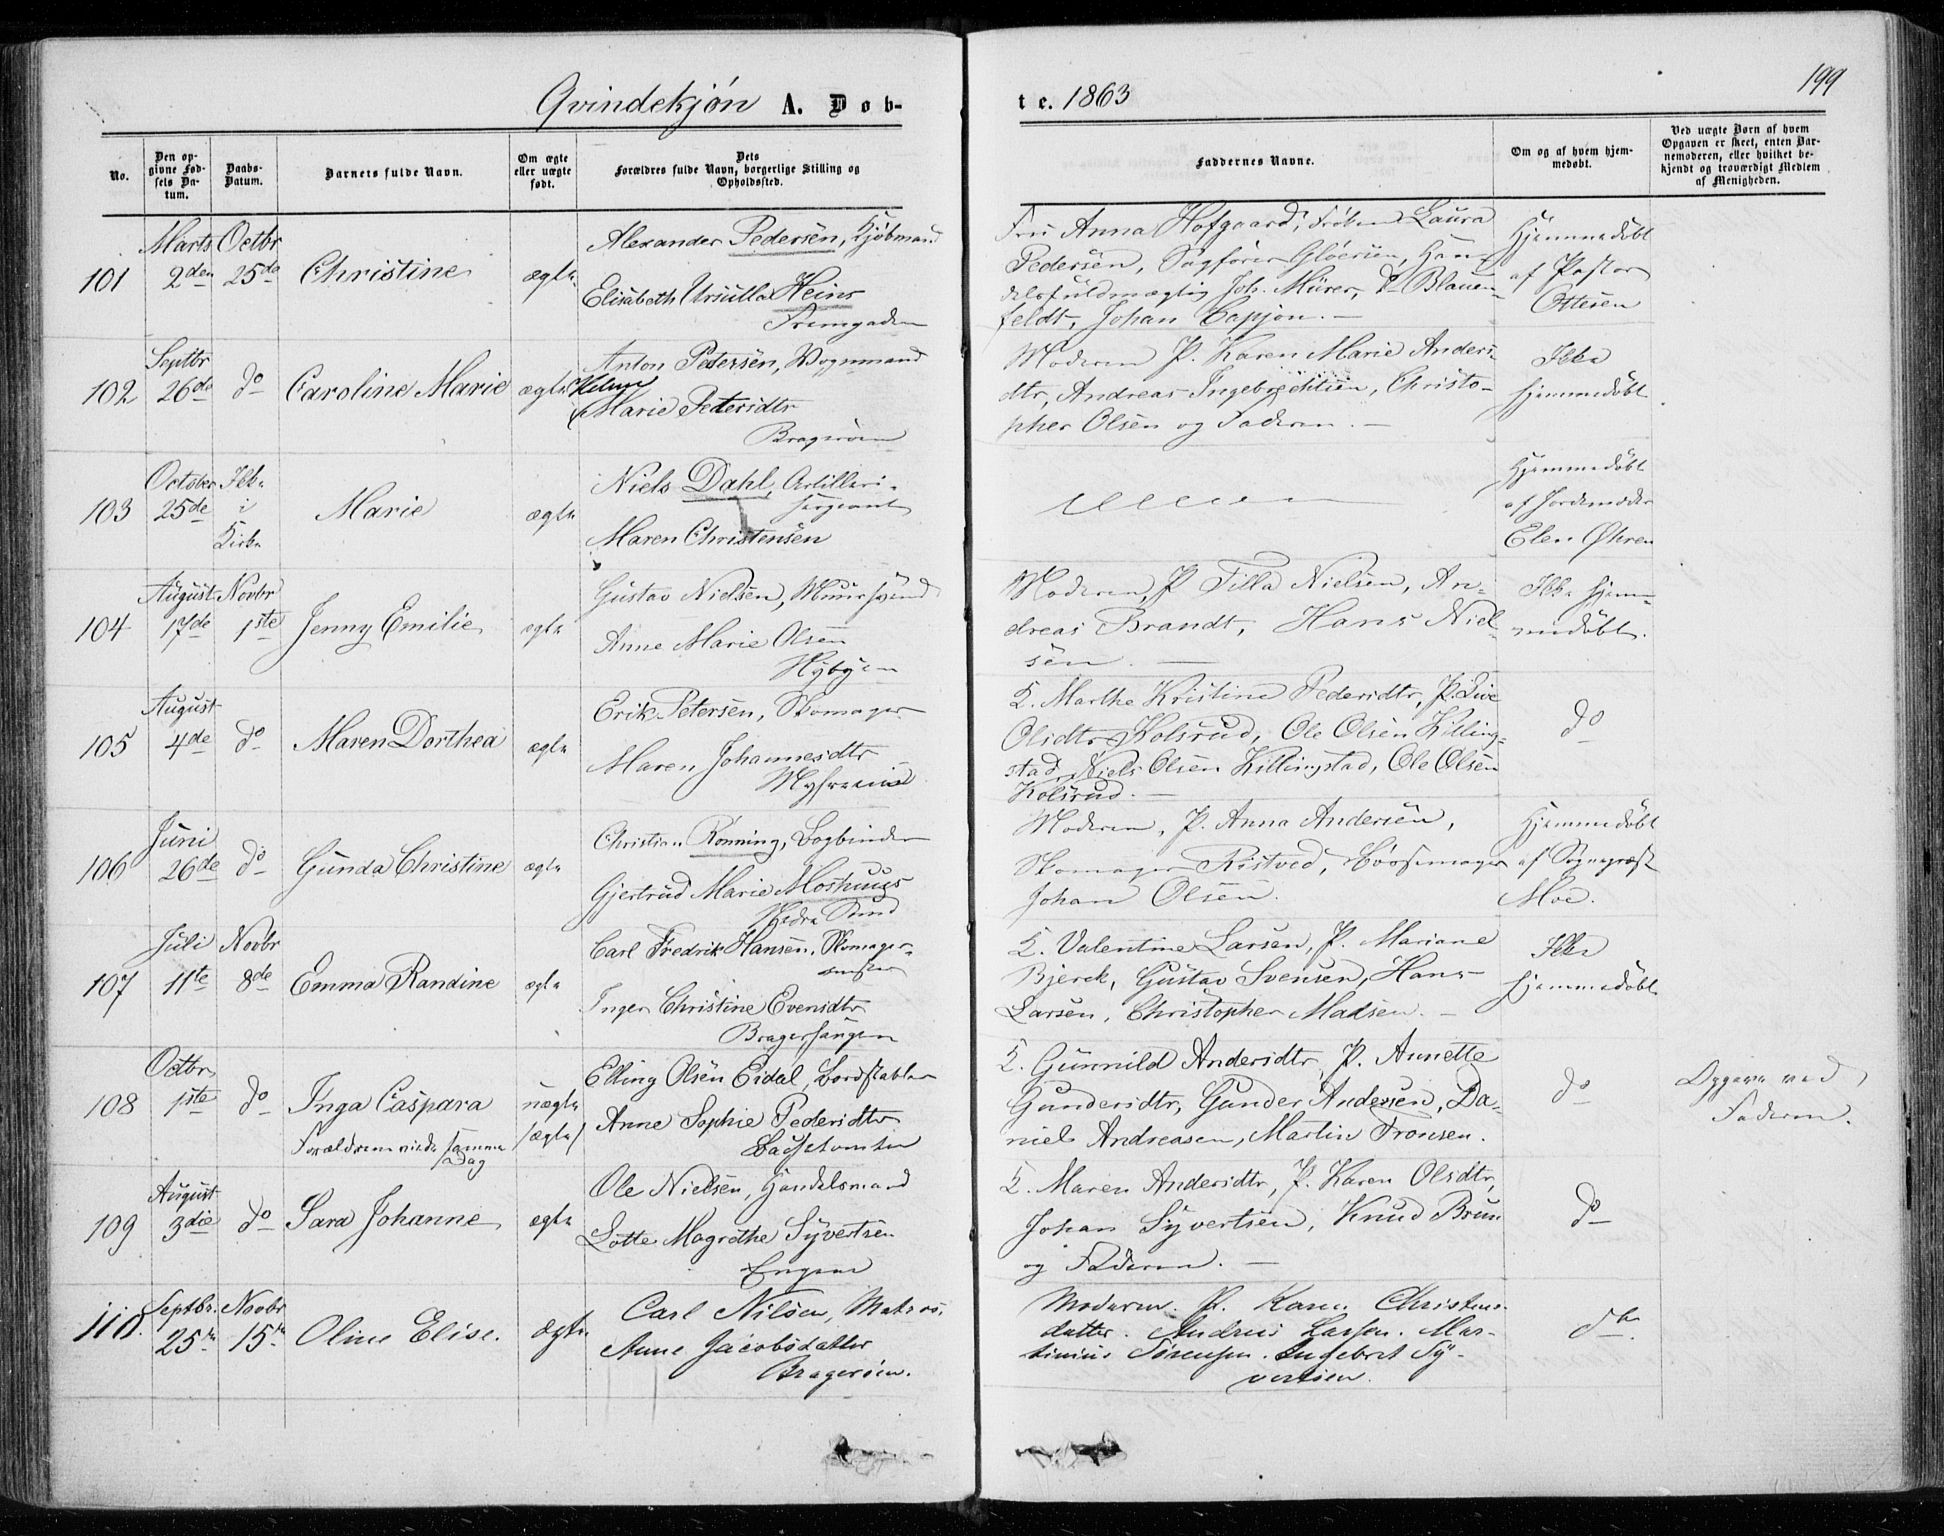 Qvindekjøn A. Døb-
te. 1863
199
No.
Den opgivne Fødsels Datum.
Daabs-Datum.
Barnets fulde Navn.
Om ægte eller uægte født.
Dets Forældres fulde Navn, borgerlige Stilling og Opholdssted.
Faddernes Navne.
Om og af hvem hjemmedøbt.
Ved uægte Børn af hvem Opgaven er skeet, enten Barnemoderen, eller hvilket bekjendt og troværdigt Medlem af Menigheden.
101
Marts
2den
Octbr
25de
Christine
ægte
Alexander Pedersen, Kjøbmand
Elisabeth Ursulla Heins
Fru Anna Hofgaard, Frøken Laura
Pedersen, Sagfører Gløersen, Han-
delsfuldmægtig Joh. Mürer, do Blauen-
feldt, Johan Capjon. —
Hjemmedøbt
af Pastor
Ottesen
102
Septbr
26de
do
Caroline Marie
ægte
Anton Petersen, Vognmand
Marie Petersdtr
Bragerøen
Moderen P. Karen Marie Anders-
dtr, Andreas Ingebregtsen, Christo-
pher Olsen og Faderen. —
Ikke
hjemmedøbt
103
October
25de
Ikke
i
Kirke
Marie
ægte
Niels Dahl, Artilleri-
sergeant
Maren Christensen
Hjemmedøbt
af Jordemoder
Elen Øhren
104
August
17de
Novbr
1ste
Jenny Emilie
ægte
Gustav Nielsen, Muursvend
Anne Marie Olsen
Nybyen
Moderen, P. Tilla Nielsen, An-
dreas Brandt, Hans Niel-
sen. —
Ikke hjem-
medøbt.
105
August
4de
do
Maren Dorthea
ægte
Erik Petersen, Skomager
Maren Johannesdtr
K. Marthe Kristine Pedersdtr, P. Live
Olsdtr Kolsrud, Ole Olsen Killing-
stad, Niels Olsen Killingstad, Ole Olsen
Kolsrud. —
do
106
Juni
26de
do
Gunda Christine
ægte
Christian Rønning, Bogbinder
Gjertrud Marie Moshuus
Nedre Sund
Moderen, P. Anna Andersen,
Skomager Ristved, Børsemager
Johan Olsen.
Hjemmedøbt
af Sognepræst
Moe.
107
Juli
11te
Novbr
8de
Emma Randine
ægte
Carl Fredrik Hansen, Skomager-
Inger Christine Evensdtr
K. Valentine Larsen, P. Mariane
Bjerck, Gustav Svensen, Hans
Larsen, Christopher Madsen. —
Ikke
hjemmedøbt
108
Octbr
1ste
do
Inga Caspara
Forældrene viede samme
Dag
uægte
/ægte/
Elling Olsen Eidal, Bordstabler
Anne Sophie Pedersdtr
K. Gunnild Andersdtr, P. Annette
Gundersdtr, Gunder Andersen, Da-
niel Andreasen, Martin Tronsen.
do
Opgave ved
Faderen.
109
August
3die
do
Sara Johanne
ægte
Ole Nielsen, Handelsmand
Lotte Magrethe Syvertsen
Engene
K. Maren Andersdtr, P. Karen Olsdtr,
Johan Syvertsen, Knud Brun
og Faderen. —
do
110.
Septbr.
25de
Novbr
15de
Oline Elise.
ægte
Carl Nilsen, Matros,
Anne Jacobsdatter
Bragerøen.
Moderen. P. Karen Christens-
datter. Andreas Larsen. Mar-
tinius Sørensen. Engebret Sy-
vertsen.
do.